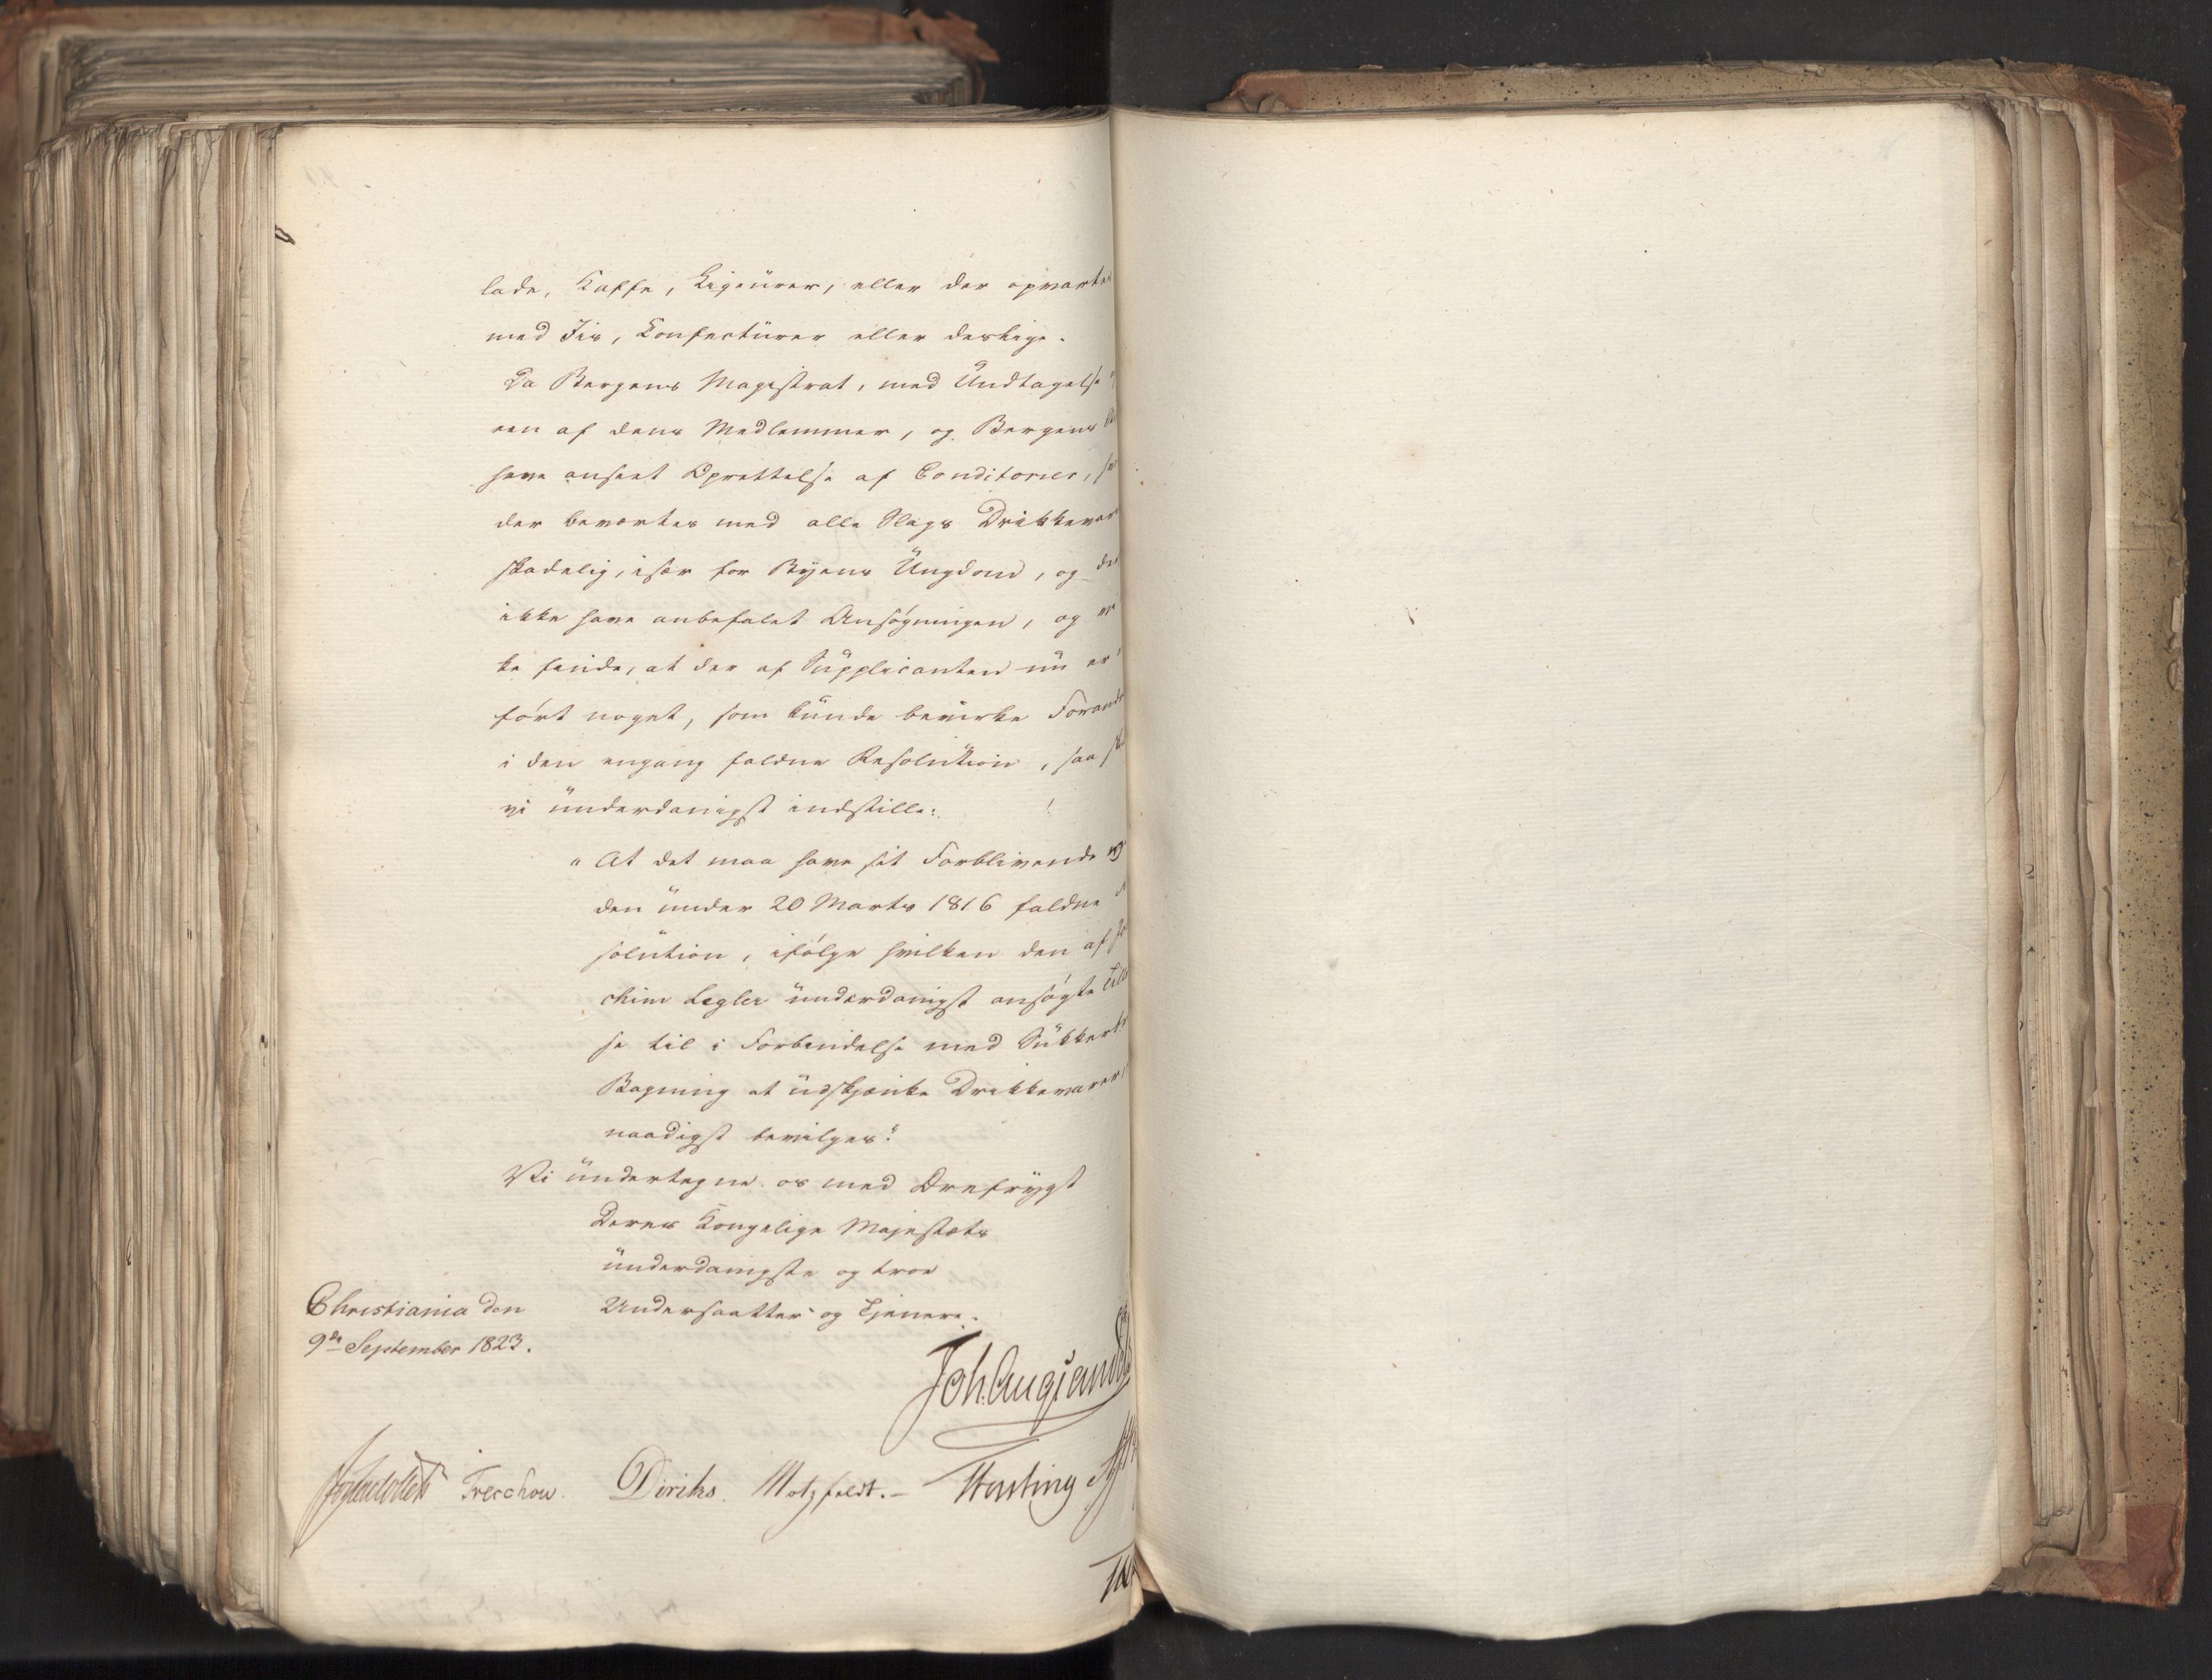 lade, Kaffe, Liqeürer, eller der opvartes
med Iis, Konfectürer eller deslige.
Da Bergens Magistrat, med Ündtagelse
een af dens Medlemmer, og Bergens
have anseet Oprettelse af Conditorier,
der beværtes med alle Slags Drikkevar
skadelig, især for Byens Üngdom, og
ikke have anbefalet Ansøgningen, og
ke finde, at der af Süpplicanten nü er
ført noget, som künde bevirke Forandr
i den engang faldne Resolütion, saa
vi ünderdanigst indstille:
"At det maa have sit Forblivende
den ünder 20 Marts 1816 faldne
solütion, ifølge hvilken den af Jo
chim Legler ünderdanigst ansøgte Till
se til i Forbindelse med Sükker
Bagning at üdskjænke Drikkevarer,
naadigst bevilges."
Vi ündertegne os med Ærefrygt
Deres Kongelige Majestæts
ünderdanigste og troe
Undersaatter og Tjenere.
Christiania den
9de September 1823.
Joh. Aug. Sandels
Treschow. Diriks. Motzfeldt.